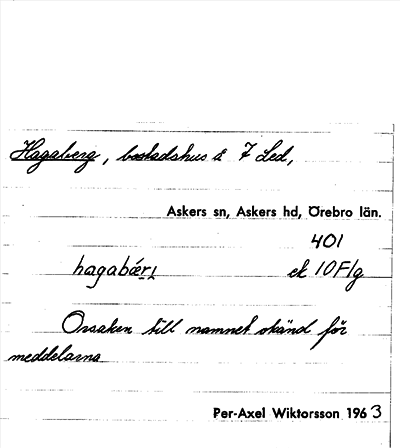 Hagaberg, bostadshus å 7 Led,
Askers sn, Askers hd, Örebro län.
401
hagabǽrı ek 10F1g
Orsaken till namnet okänd för
meddelarna
Per-Axel Wiktorsson 1963